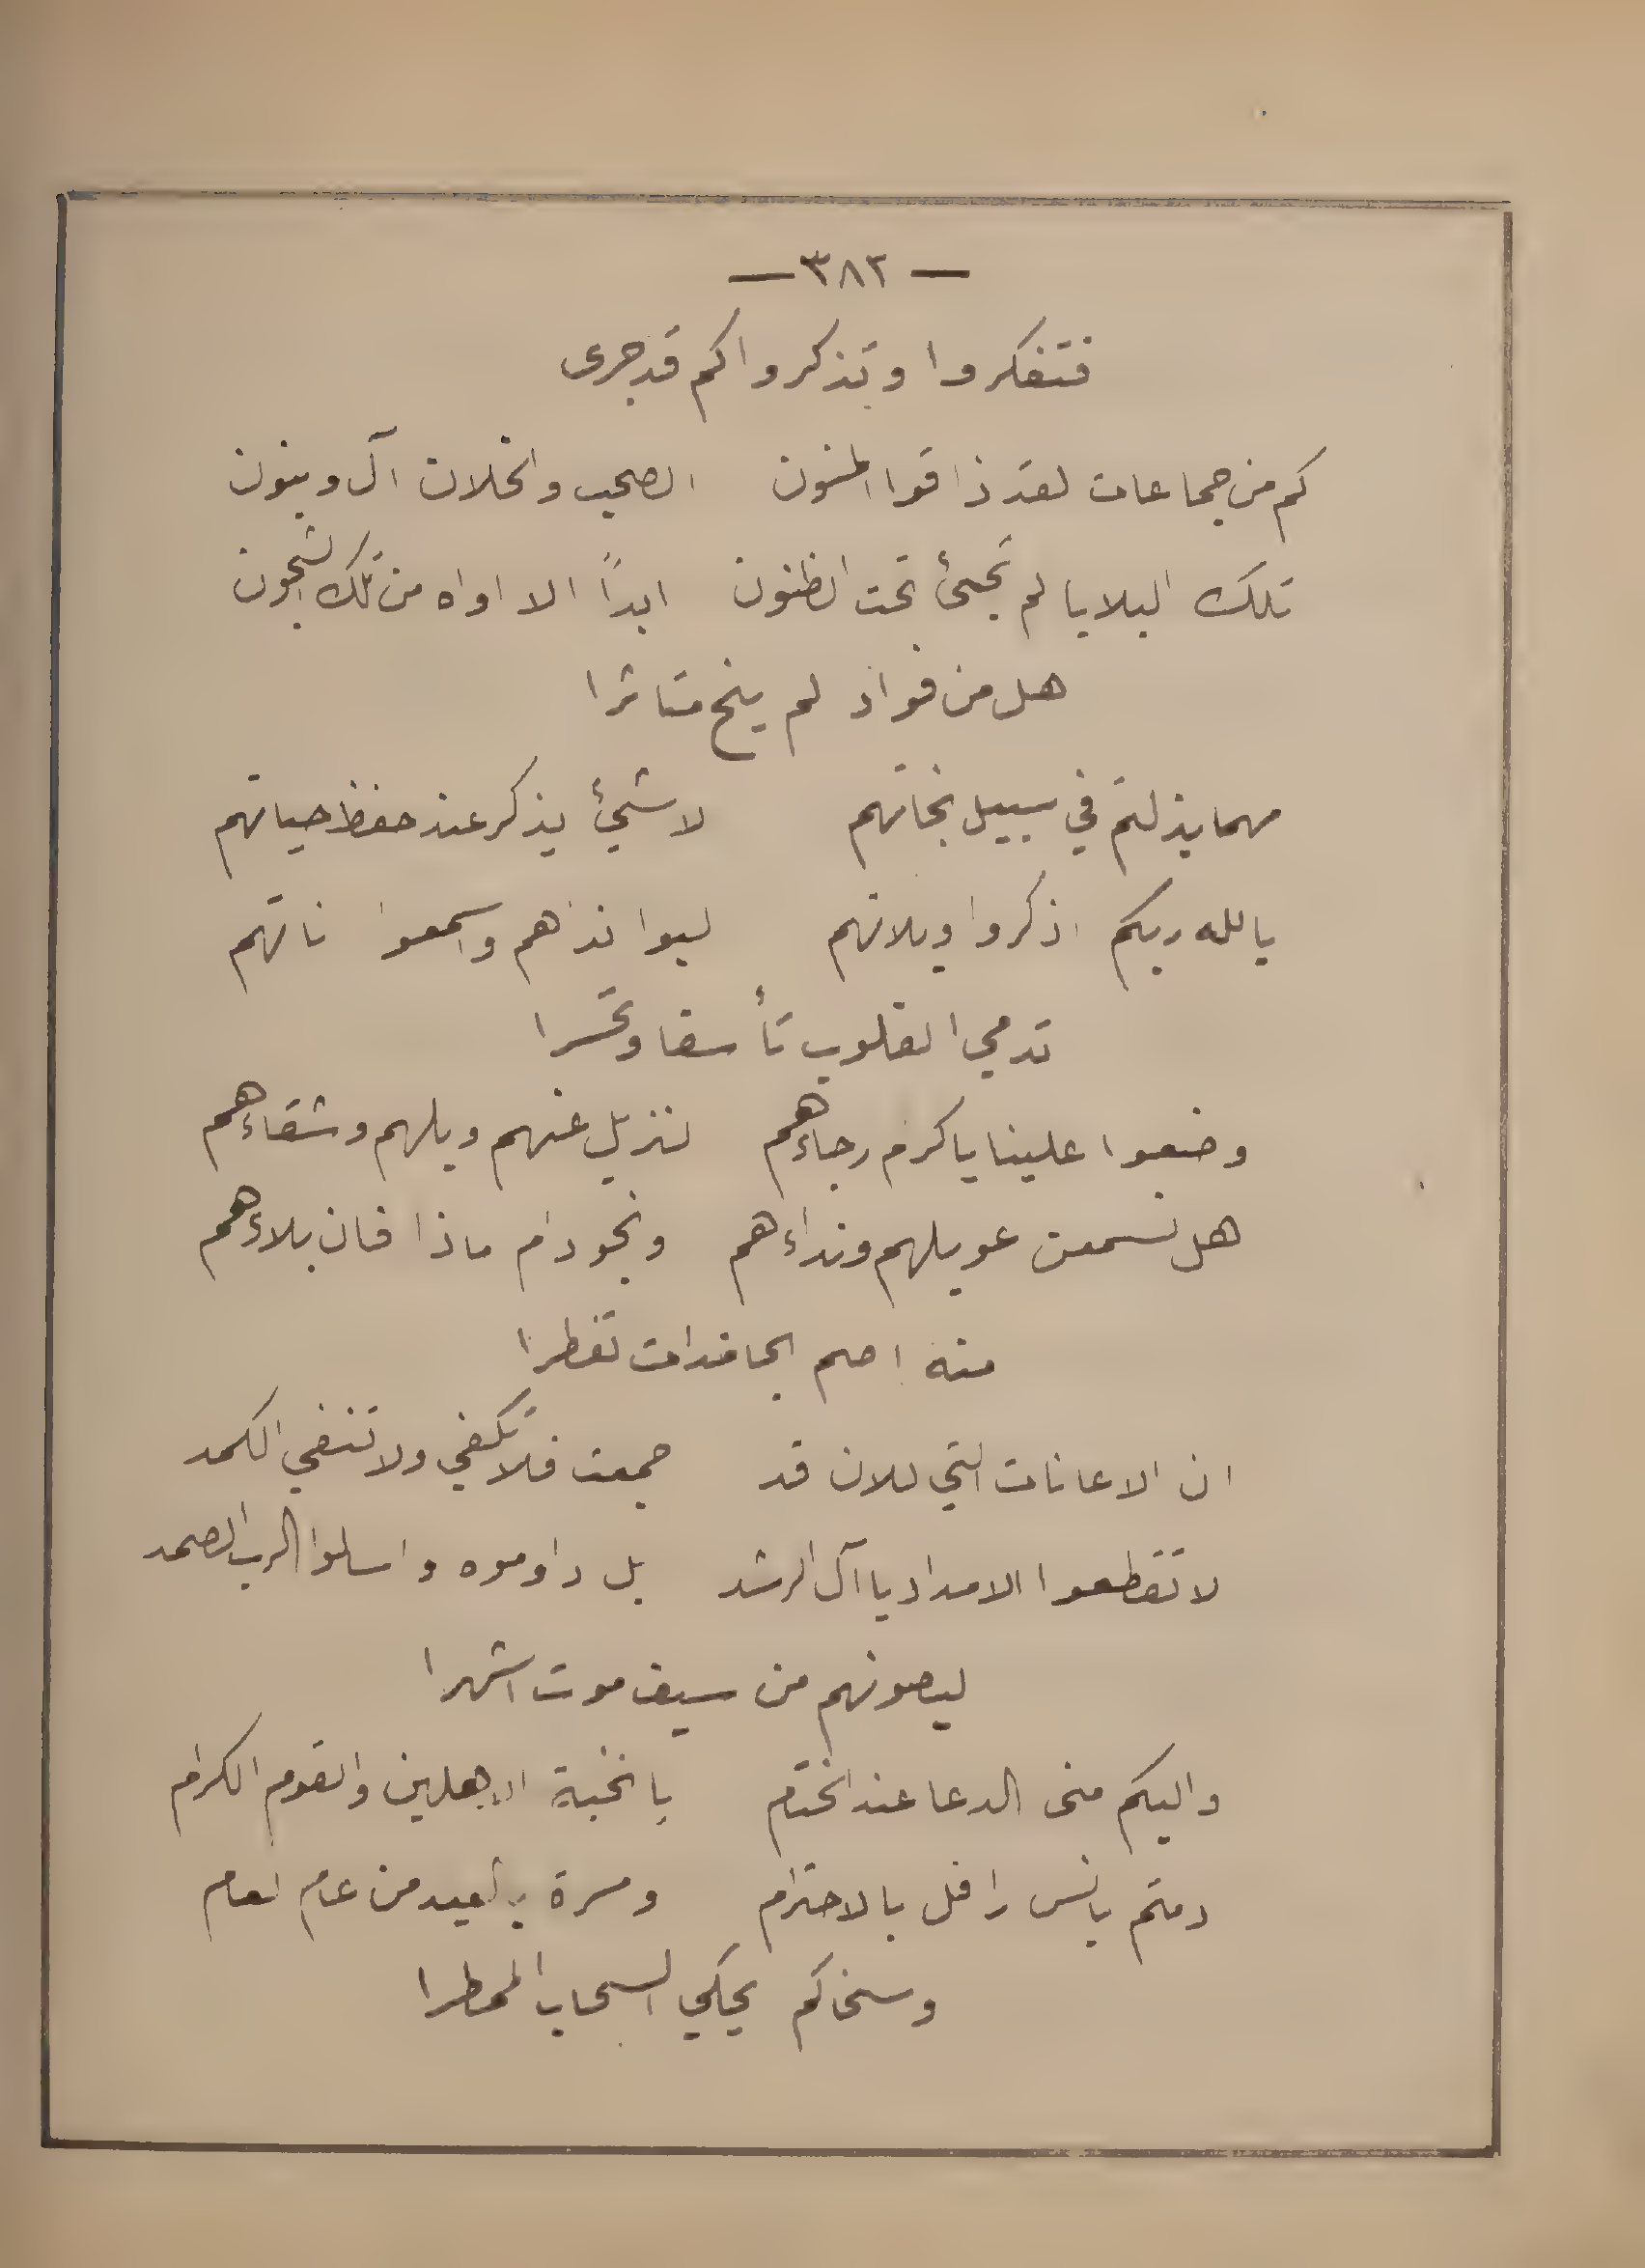 — ٣٨٢ —
فتفكروا وتذكروا كم قد جرى
كم من جماعات لقد ذاقوا المنون الصحب والخلان آل وبنون
تلك البلايا لم تجئ تحت الظنون ابداً الا اواه من تلك الشجون
هل من فواد لم ينح متاثرا
مهما بذلتم في سبيل نجاتهم لا شيئ يذكر عند حفظ حياتهم
بالله ربكم اذكروا ويلاتهم لبوا نداهم واسمعوا ناتهم
تدمي القلوب تأسفا وتحسرا
وضعوا علينا يا كرم رجاءهم لنزيل عنهم ويلهم وشقاءهم
هل نسمعن عويلهم ونداءهم ونجودام ماذا فان بلاءهم
منه اصم الجامدات تفطرا
ان الاعانات التي للان قد جمعت فلا تكفي ولا تنفي الكمد
لا تقطعوا الامداد يا آل الرشد بل داوموه واسالوا الرب الصمد
ليصونهم من سيف موت اشهرا
واليكم منى الدعا عند الختام يا نخبة الاهلين والقوم الكرام
دمتم بانس رافل بالاحترام ومسرة بالعيد من عام لعام
وسخاكم يحكي السحاب الممطرا